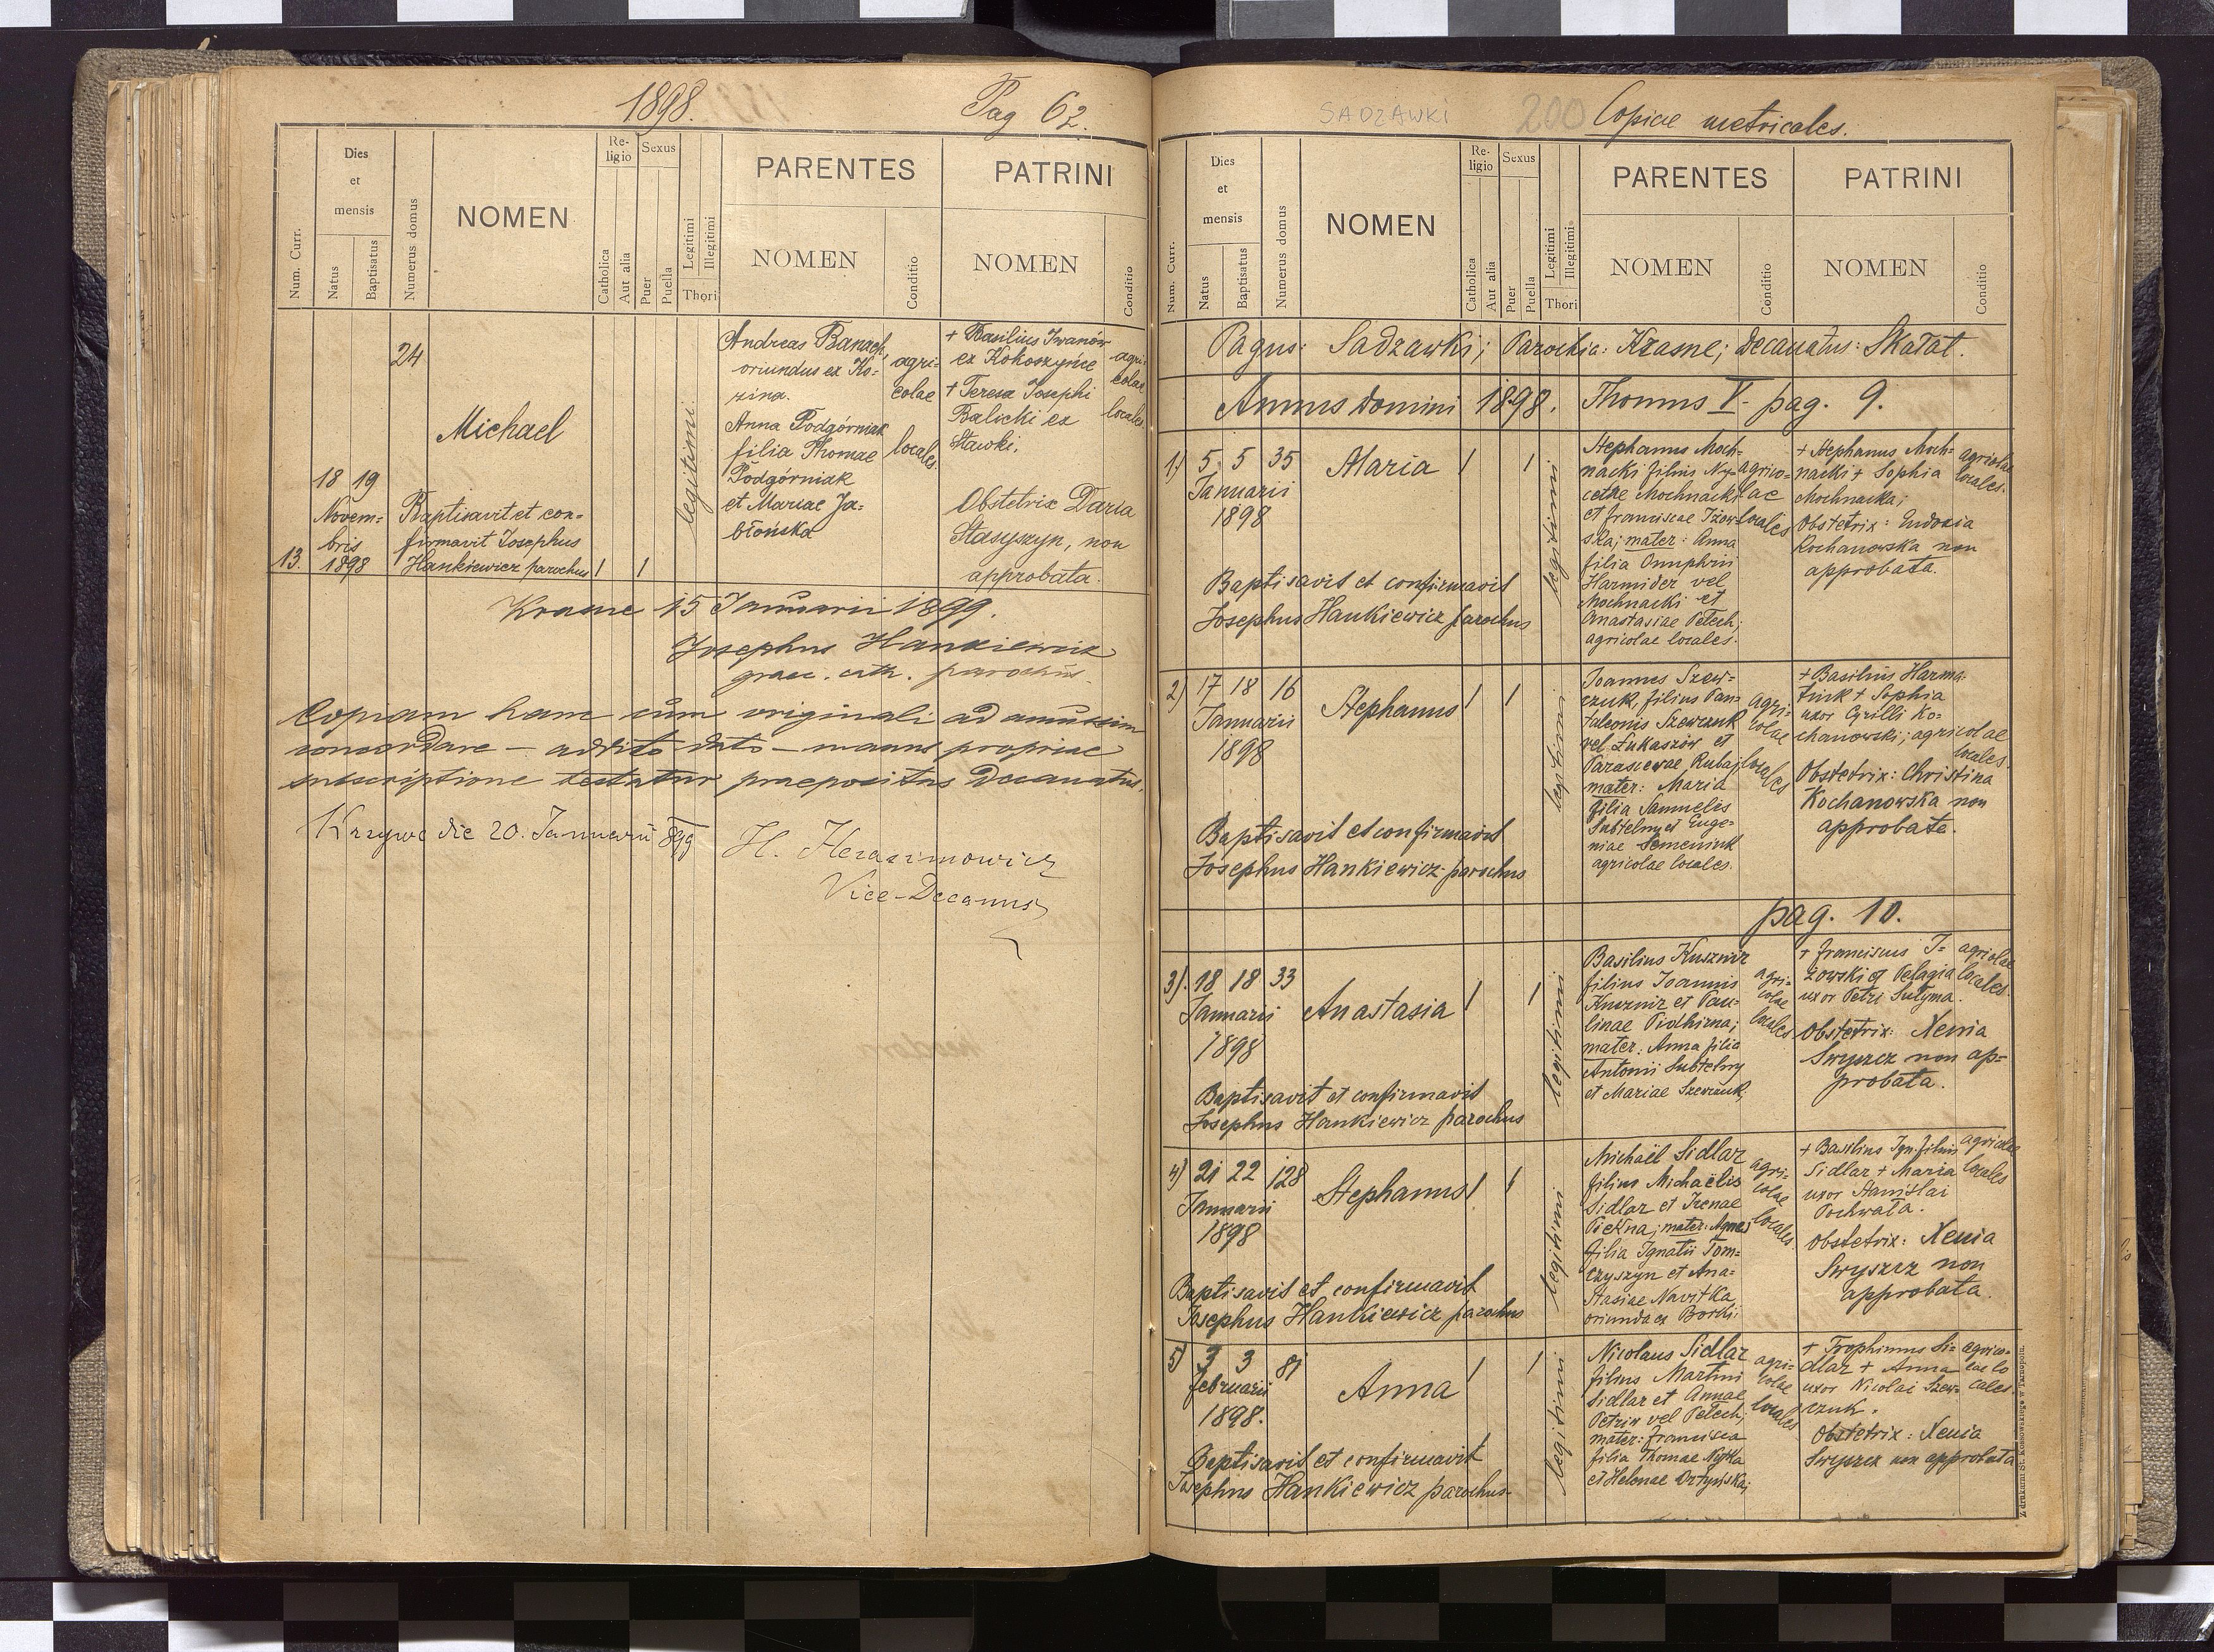 1898.
Pag 62.
Dies et mensis
Re-ligio
Sexus
PARENTES
PATRINI
Num. Curr.
Natus
Baptisatus
Numerus domus
NOMEN
Catholica
Aut alia
Puer
Puella
Legitimi
Illegitimi
Thori
NOMEN
Conditio
NOMEN
Conditio
24
Michael
18 19
Novem-
bris
13. 1898
Baptisavit et con-
firmavit Josephus
Hankiewicz parochus
1
1
legitimi
Andreas Banach,
oriundus ex Ko-
zina.
Anna Podgórniak
filia Thomae
Podgórniak
et Mariae Ja-
błońska
agri-
colae
locales.
+ Basilius Iwanów
ex Kokoszyńce
+ Teresa Josephi
Balicki ex
Stawki.
agri-
colae
locales
Obstetrix Daria
Stasyszyn, non
approbata.
Krasne 15 Januarii 1899.
Josephus Hankiewicz
graec. cath. parochus.
Copiam hanc cum originali ad amussim
concordare – addito dato – manus propriae
subscriptione testatur praepositus Decanatus.
Krzywe die 20. Januarii 899
H. Herasimowicz
Vice-Decanus
SADZAWKI
200
Copiae metricales.
Dies et mensis
Re-ligio
Sexus
PARENTES
PATRINI
Num. Curr.
Natus
Baptisatus
Numerus domus
NOMEN
Catholica
Aut alia
Puer
Puella
Legitimi
Illegitimi
Thori
NOMEN
Conditio
NOMEN
Conditio
Pagus: Sadzawki; Parochia: Krasne; Decanatus: Skałat.
Annus Domini 1898. Thomus V. pag. 9.
1) 5 5 35 Maria 1 1
Januarii
1898
Baptisavit et confirmavit
Josephus Hankiewicz parochus
legitimi
Stephanus Moch-
nacki filius Ny-
cetae Mochnacki
et Franciscae Iżow-
ska; mater: Anna
filia Onuphrii
Harmider vel
Mochnacki et
Anastasiae Petech;
agricolae locales.
agrico-
lae
locales
+ Stephanus Moch-
nacki + Sophia
Mochnacka;
agricolae
locales.
Obstetrix: Eudoxia
Kochanowska non
approbata.
2) 17 18 16 Stephanus 1 1
Januarii
1898
Baptisavit et confirmavit
Josephus Hankiewicz parochus
legitimi
Joannes Szew-
czuk, filius Pan-
taleonis Szewczuk
vel Łukaszów et
Parascevae Rubaj;
mater: Maria
filia Samuelis
Subtelny et Euge-
niae Semeniuk
agricolae locales.
agri-
colae
locales
+ Basilius Harma-
tiuk + Sophia
uxor Cyrilli Ko-
chanowski; agricolae
locales.
Obstetrix: Christina
Kochanowska non
approbata.
pag. 10.
3). 18 18 33 Anastasia 1 1
Januarii
1898
Baptisavit et confirmavit
Josephus Hankiewicz parochus
legitimi
Basilius Kusznir
filius Joannis
Kusznir et Pau-
linae Pidhirna;
mater: Anna filia
Antonii Subtelny
et Mariae Szewczuk;
agri-
colae
locales
+ Franciscus I-
żowski et Pelagia
uxor Petri Sutyma.
agricolae
locales.
Obstetrix: Xenia
Swyszcz non ap-
probata.
4) 21 22 128 Stephanus 1 1
Januarii
1898
Baptisavit et confirmavit
Josephus Hankiewicz parochus
legitimi
Michaël Sidlar
filius Michaëlis
Sidlar et Irenae
Piekna; mater: Agnes
filia Ignatii Tom-
czyszyn et Ana-
stasiae Navitka
oriunda ex Borki.
agri-
colae
locales.
+ Basilius Ign. filius
Sidlar + Maria
uxor Stanislai
Pochwała.
agricolae
locales
Obstetrix: Xenia
Swyszcz non
approbata.
5) 3 3 81 Anna 1 1
Februarii
1898.
Baptisavit et confirmavit
Josephus Hankiewicz parochus.
legitimi
Nicolaus Sidlar
filius Martini
Sidlar et Annae
Petriw vel Petech;
mater: Francisca
filia Thomae Nytka
et Helenae Ortyńska;
agri-
colae
locales
+ Trophimus Si-
dlar + Anna
uxor Nicolai Szew-
czuk.
agrico-
lae lo
cales.
Obstetrix: Xenia
Swyszcz non approbata
Z drukarni St. Kossowskiego w Tarnopolu.